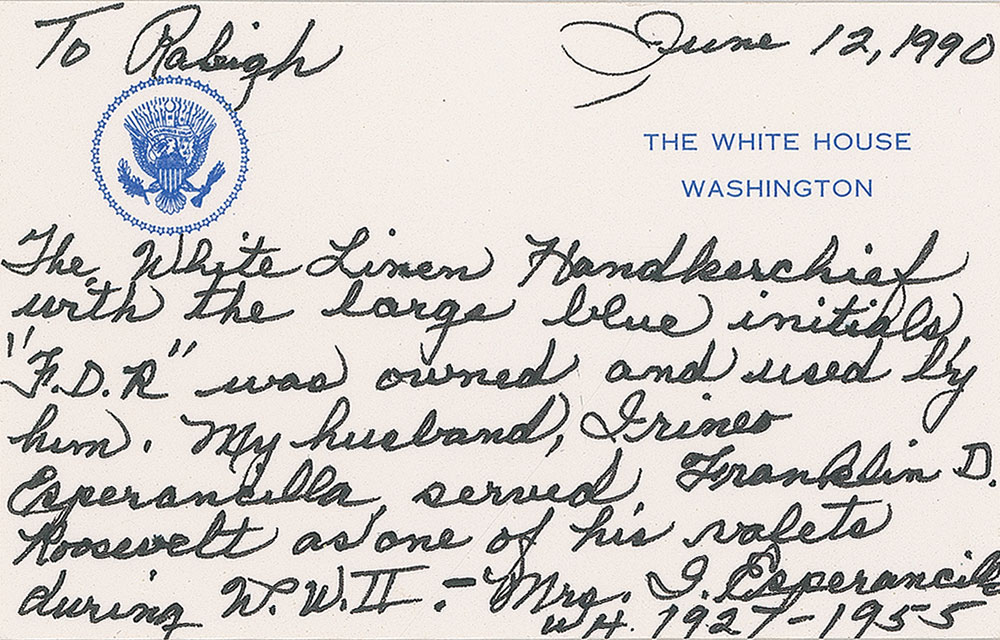 To Raleigh
June 12, 1990
THE WHITE HOUSE
WASHINGTON
The White Linen Handkerchief
with the large blue initials,
"F.D.R" was owned and used by
him. My husband, Irineo
Esperancilla, served Franklin D.
Roosevelt as one of his valets
during W.W.II. - Mrs. I. Esperancilla
W.H. 1927-1955